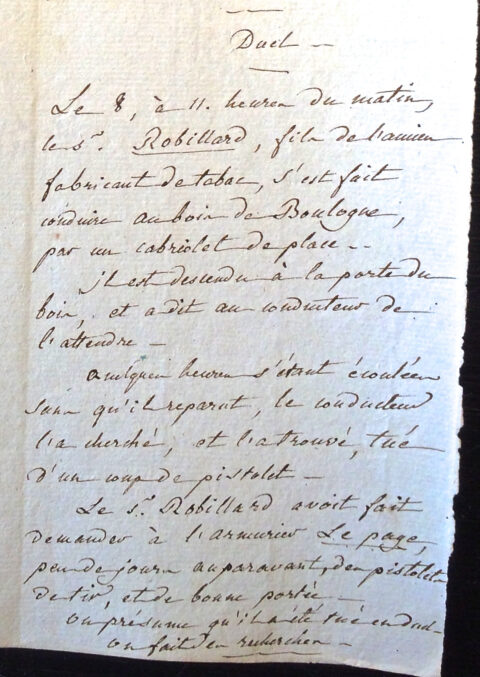 Duel —
Le 8, à 11. heures du matin,
le sr. Robillard, fils de l'ancien
fabricant de tabac, s'est fait
conduire au bois de Boulogne,
par un cabriolet de place --
il est descendu à la porte du
bois, et a dit au conducteur de
l'attendre —
Quelques heures s'étant écoulées
sans qu'il reparut, le conducteur
l'a cherché, et l'a trouvé, tué
d'un coup de pistolet —
Le sr. Robillard avoit fait
demander à l'armurier Le page,
peu de jours auparavant, des pistolets
de tir, et de bonne portée —
on présume qu'il a été tué en duel —
on fait des recherches —